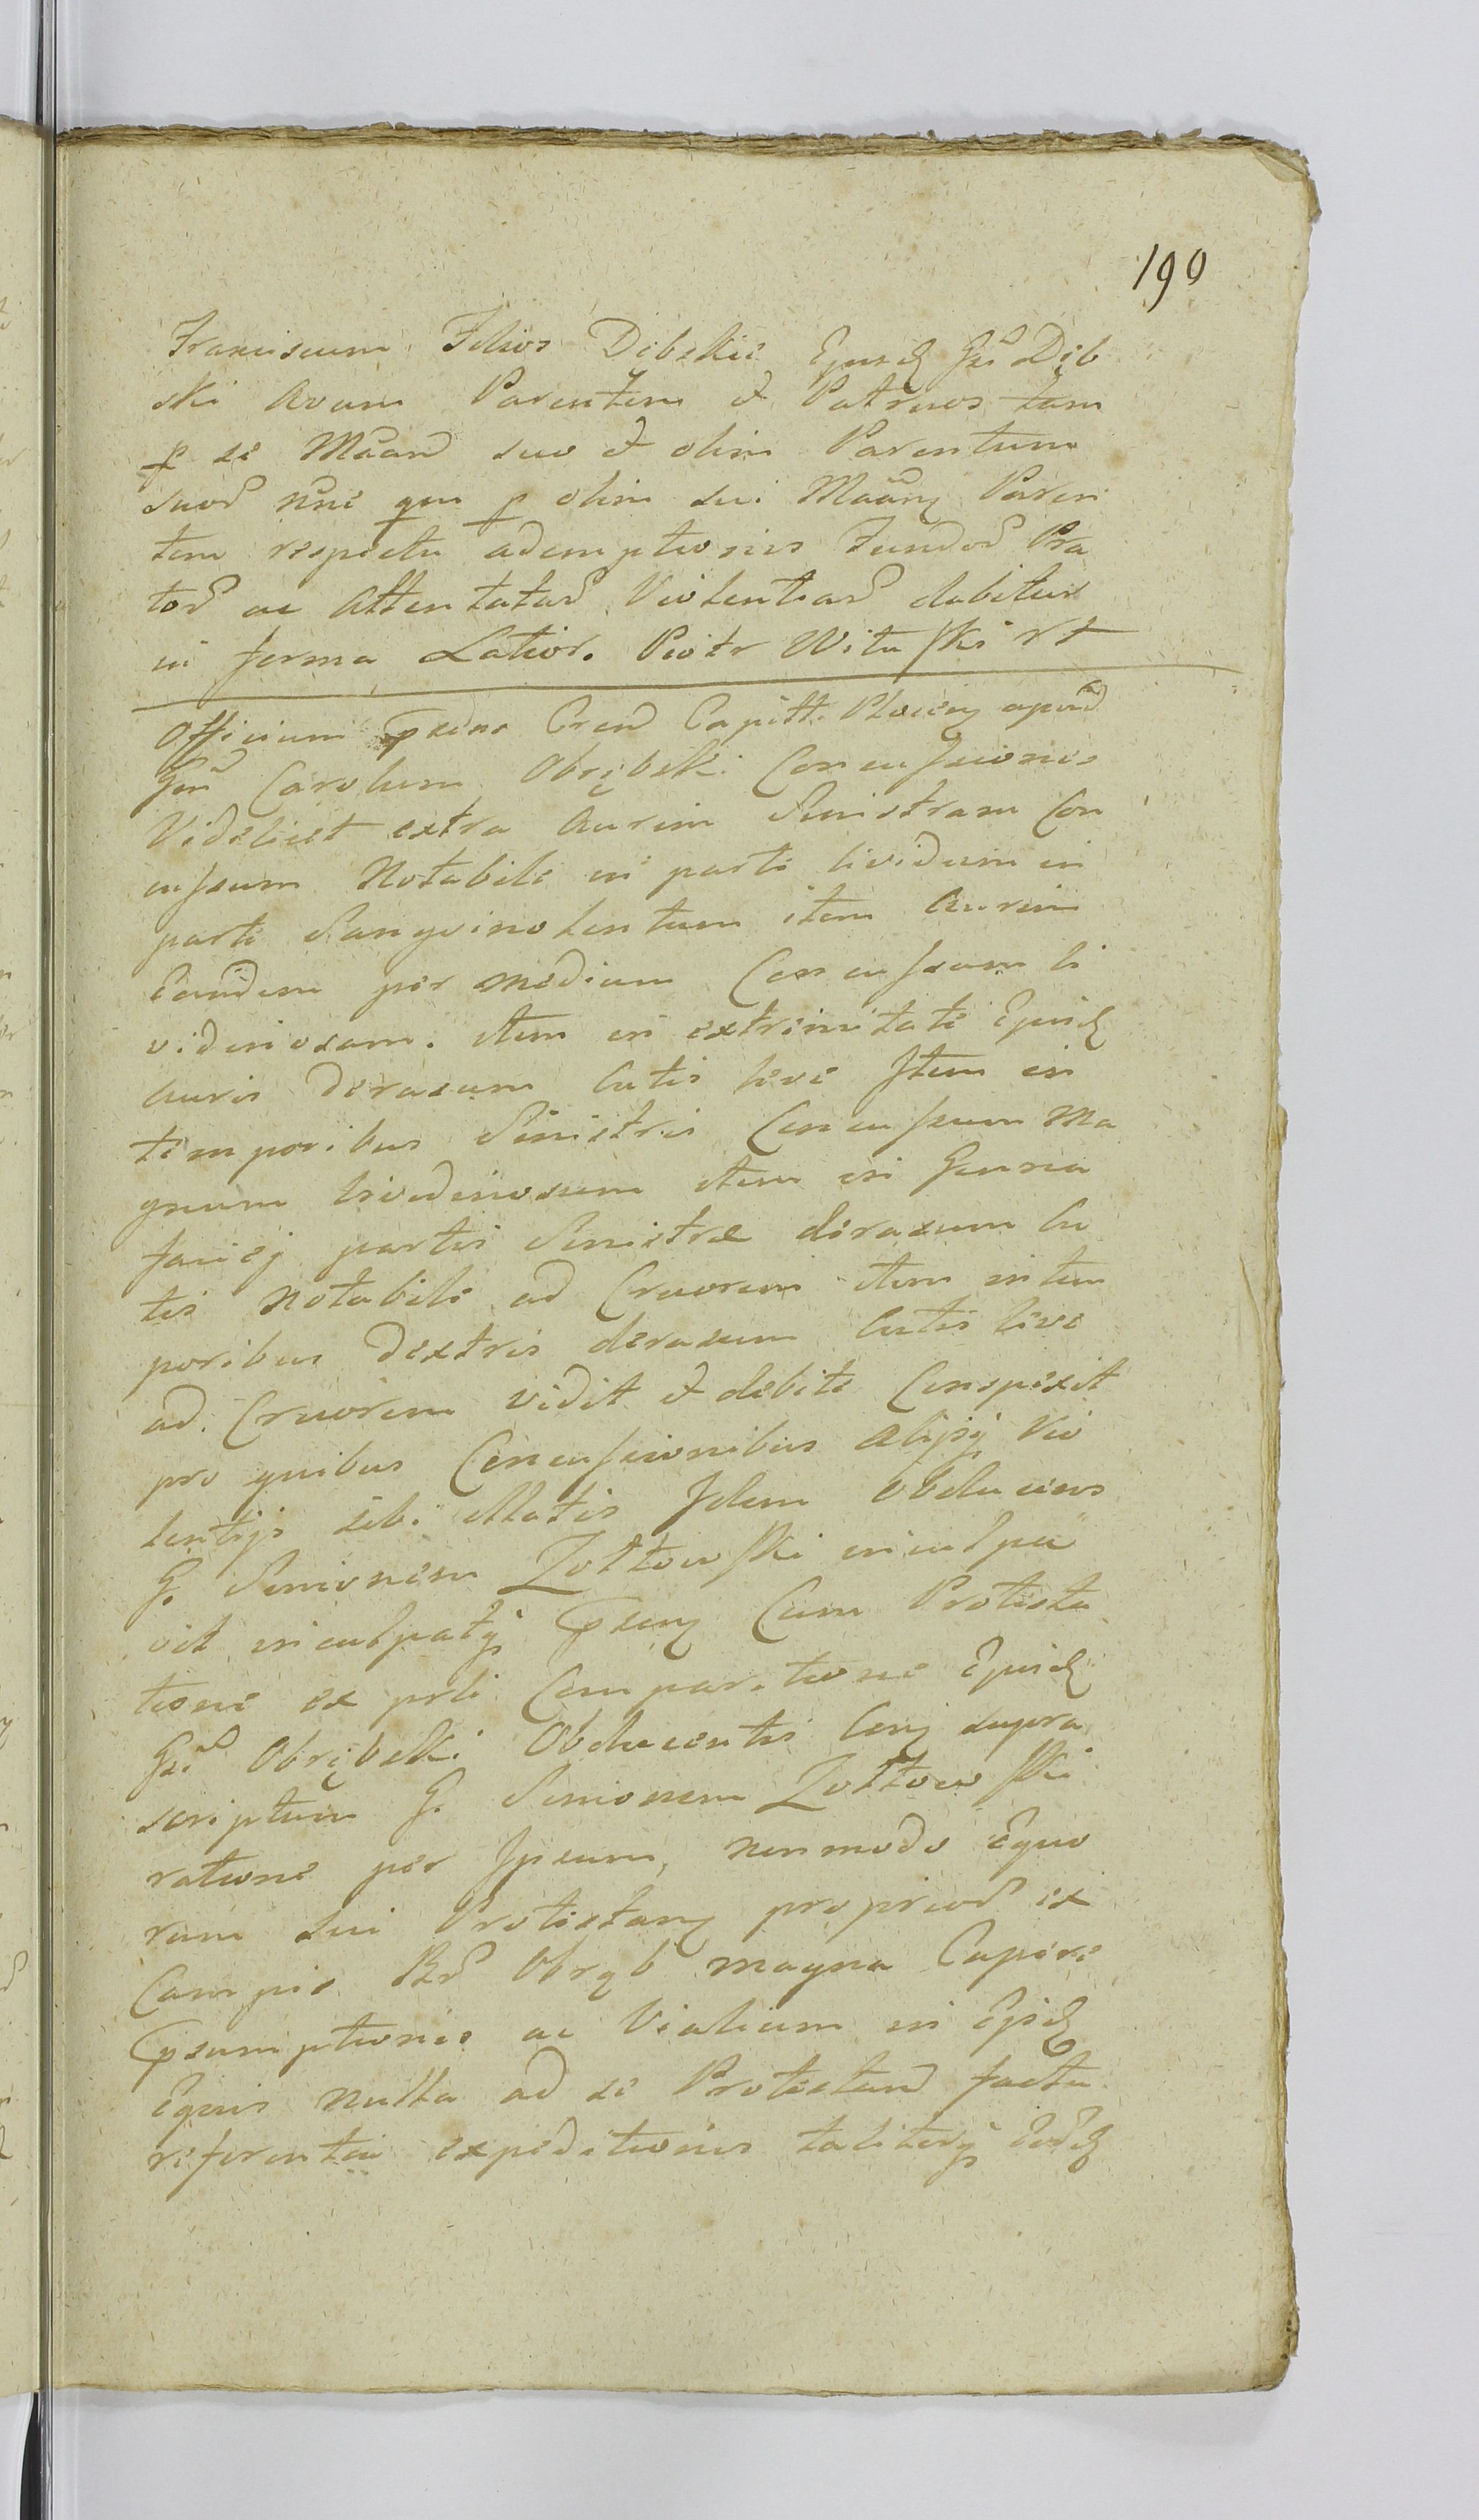 190
Franciscum Filios Dębskie Ejusd Gsi Dęb
ski Avum Parentem et Patruos tam
p se Maand suo et olim Parentum
suor nne qm p olim sui Maanz Paren
tem respectu ademptionis Fundor Pra
tor ac Attentatar Violentiar debitur
in forma Latior. Piotr Wituski rt
Officium Psens Cren Capitt. Plocen apud
Gen Carolum Obrębski Concussiones
Videlicet extra Aurim Sinistram Con
cussum Notabile in parte lividum in
parte Sangvinolentum item Aurim
Eandem per medium Concussam li
vidinosam. Item in extremitate Ejusd
Auris derasum Cutis leve Item in
temporibus Sinistris Concussum Ma
gnum lividinosum Item in Genua
faciej partis Sinistræ derasum Cu
tis notabile ad Cruorem Item in tem
poribus dextris derasum Cutis leve
ad Cruorem vidit et debite Conspexit
pro quibus Concussionibus Alijsq Vio
lentijs sibi illatis Idem Obducens
G. Simonem Zołtowski inculpa
vit inculpatq Psenz Cum Protesta
tione ex prti Comparitione Ejusd
Gsi Obrębski Obducentis Conz supra
scriptum G. Simonem Zołtowski
ratione per Ipsum, nonmodo Equo
rum sui Protestanz proprior ex
Campis Br Obręb magna Cupere
Psumptionis ac Vialium in Ejsd
Equis nulla ad se Protestand facta
referentia expeditionis taliterq Eosd